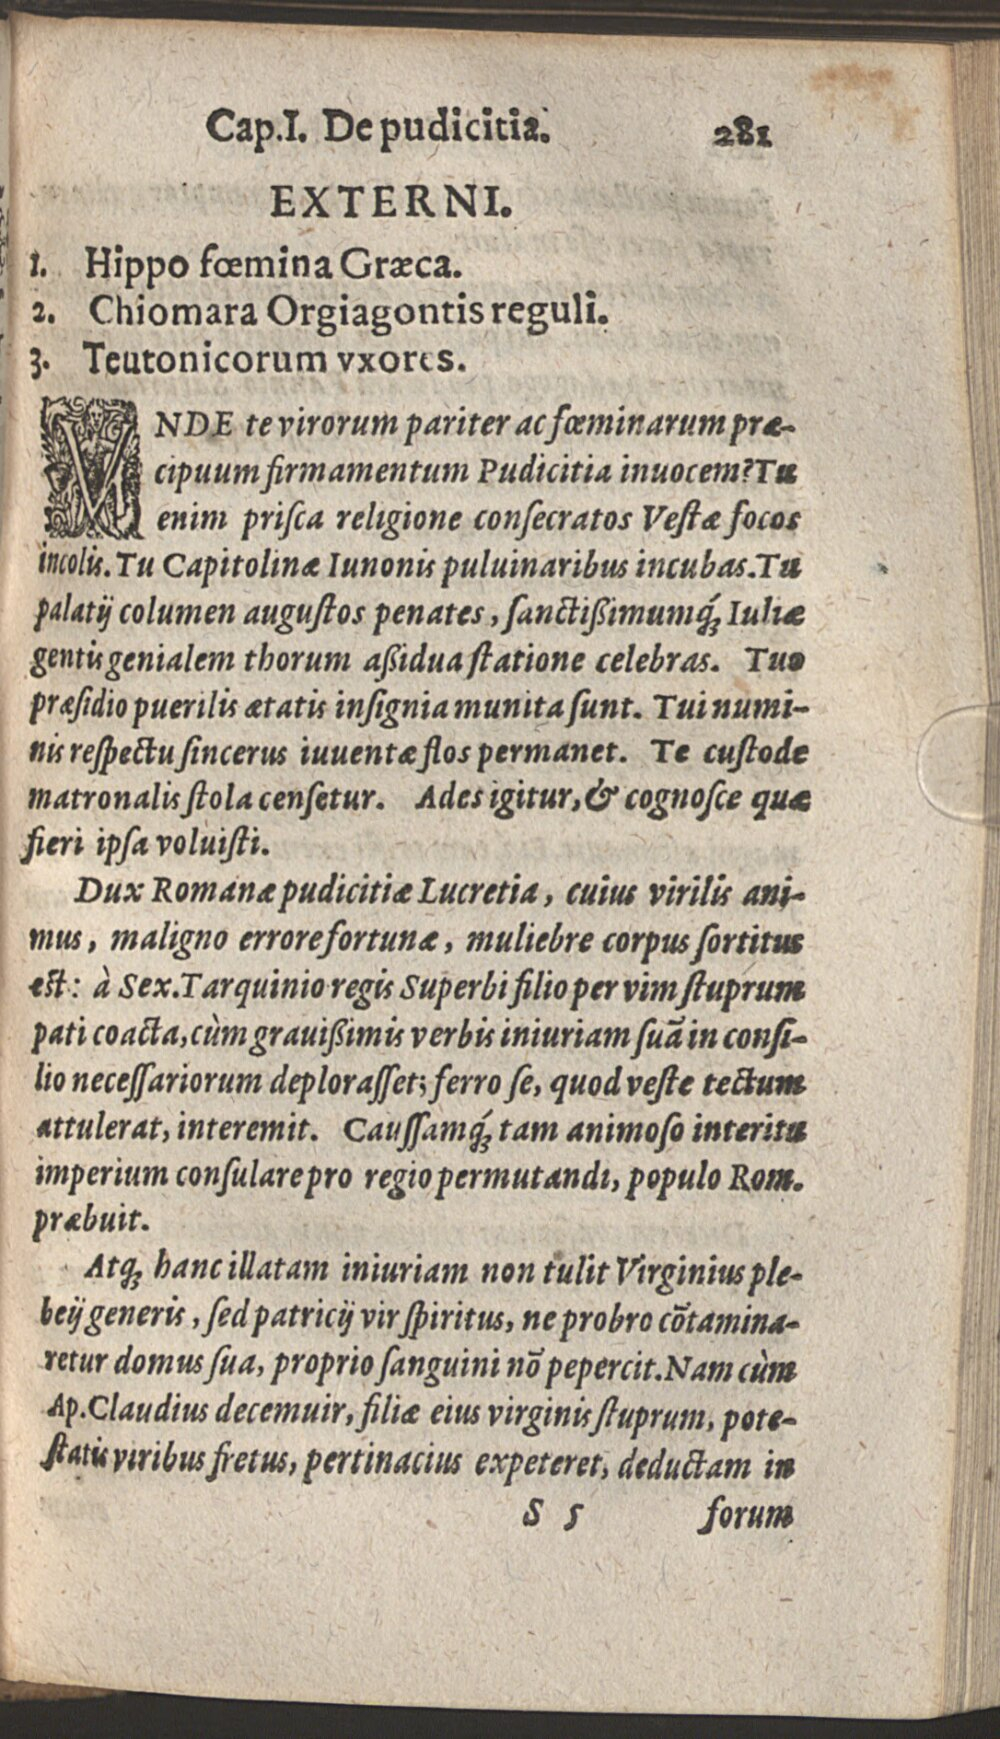 Cap.I. De pudicitia. 281
EXTERNI.
1. Hippo fœmina Græca.
2. Chiomara Orgiagontis reguli.
3. Teutonicorum vxores.
VNDE te virorum pariter ac fœminarum præ-
cipuum firmamentum Pudicitia inuocem? Tu
enim priſca religione conſecratos Veſtæ focos
incolis. Tu Capitolinæ Iunonis puluinaribus incubas. Tu
palatij columen auguſtos penates, ſanctißimumq́; Iuliæ
gentis genialem thorum aßidua ſtatione celebras. Tuo
præſidio puerilis ætatis inſignia munita ſunt. Tui numi-
nis reſpectu ſincerus iuuentæ flos permanet. Te cuſtode
matronalis ſtola cenſetur. Ades igitur, & cognoſce quæ
fieri ipſa voluiſti.
Dux Romanæ pudicitiæ Lucretia, cuius virilis ani-
mus, maligno errore fortunæ, muliebre corpus ſortitus
eſt: à Sex. Tarquinio regis Superbi filio per vim ſtuprum
pati coacta, cùm grauißimis verbis iniuriam ſuã in conſi-
lio neceſſariorum deploraſſet; ferro ſe, quod veſte tectum
attulerat, interemit. Cauſſamq́; tam animoſo interitu
imperium conſulare pro regio permutandi, populo Rom.
præbuit.
Atq; hanc illatam iniuriam non tulit Virginius ple-
beij generis, ſed patricij vir ſpiritus, ne probro cõtamina-
retur domus ſua, proprio ſanguini nõ pepercit. Nam cùm
Ap. Claudius decemuir, filiæ eius virginis ſtuprum, pote-
ſtatis viribus fretus, pertinacius expeteret, deductam in
S 5 forum